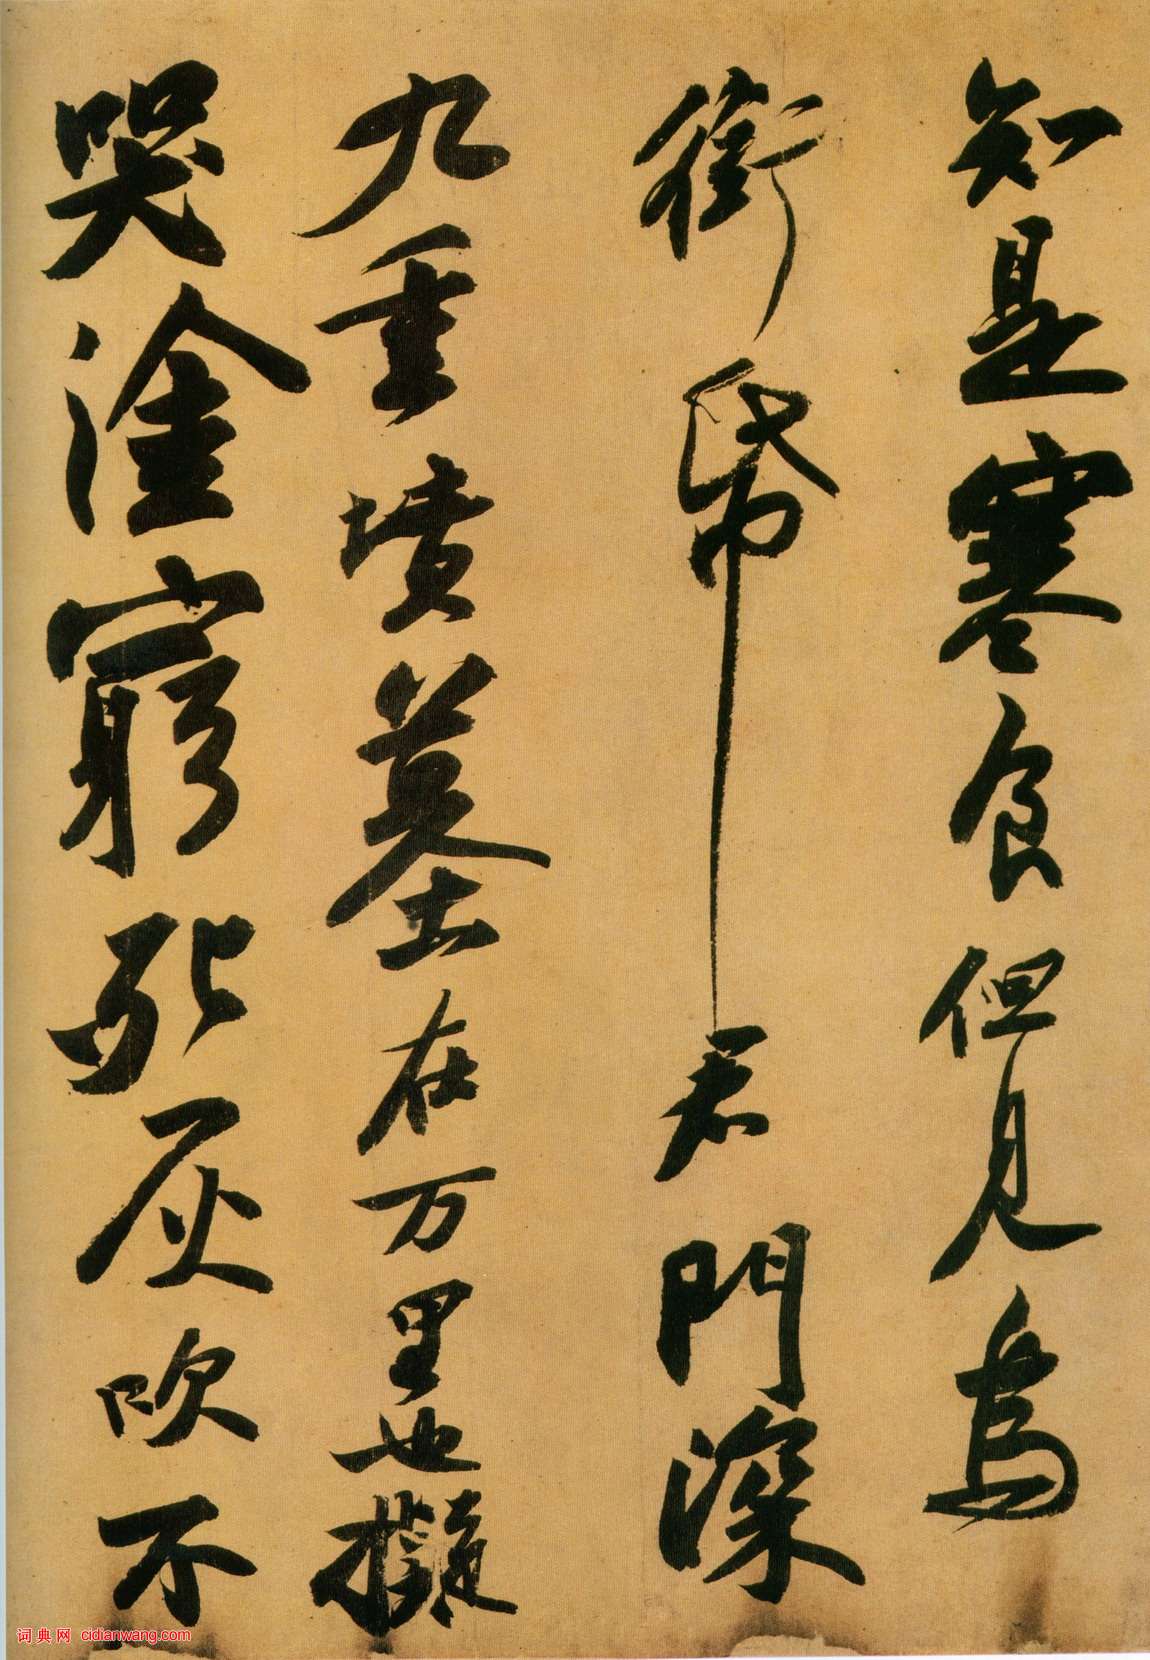 知是寒食但見烏
銜帋君門深
九重墳墓在万里也擬
哭塗窮死灰吹不
词典网 cidianwang.com